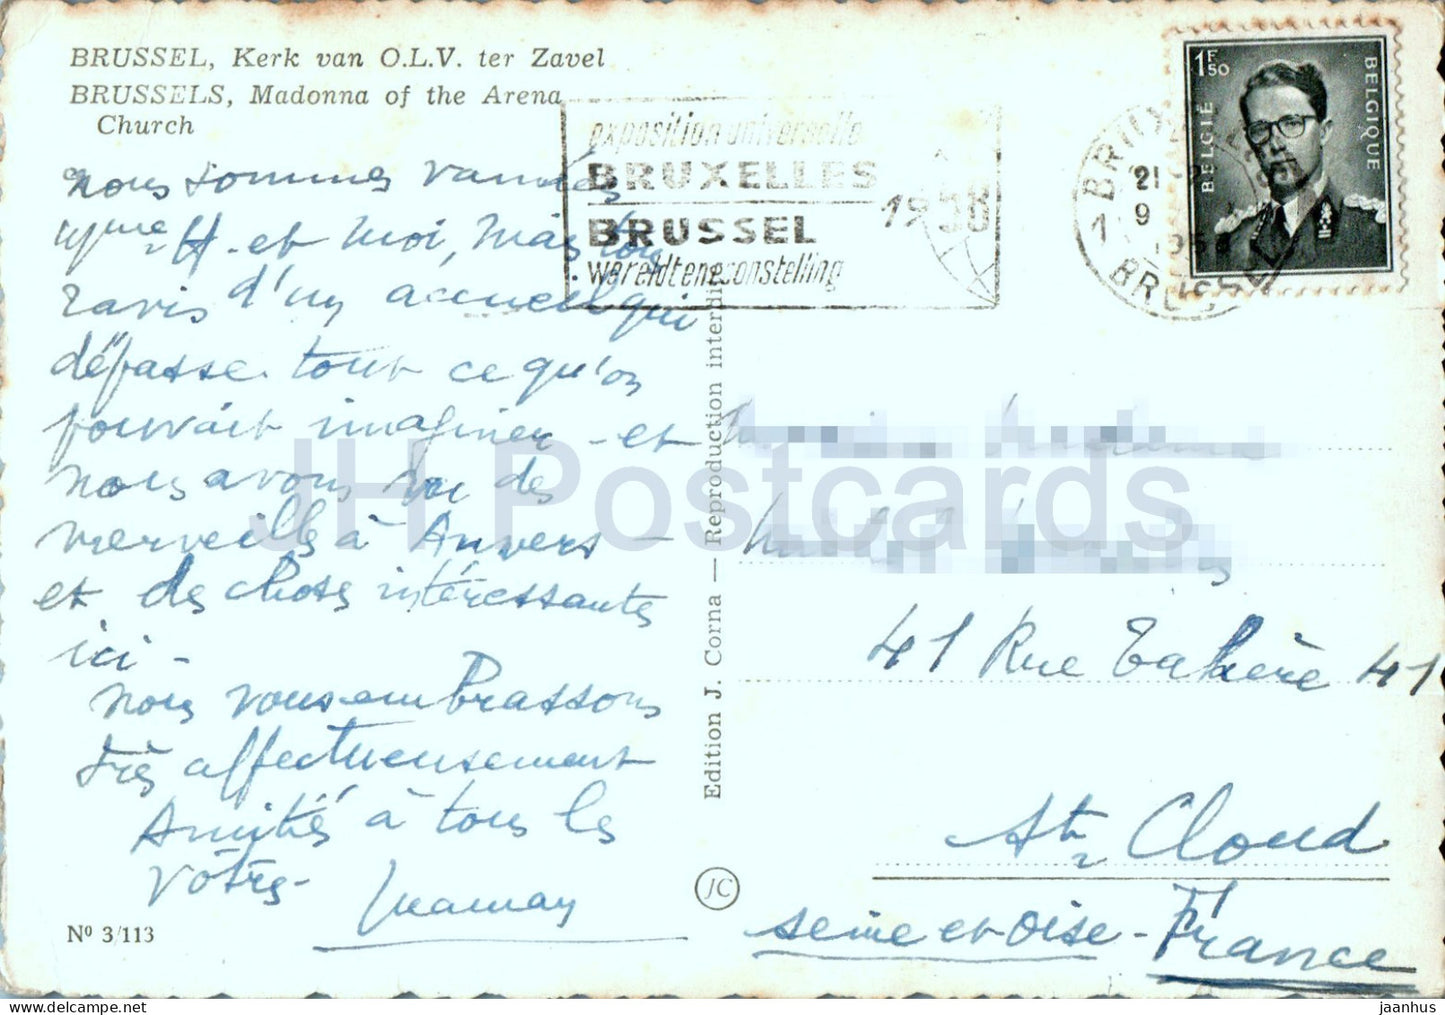 BRUSSEL, Kerk van O.L.V. ter Zavel
BRUSSELS, Madonna of the Arena
Church
nous sommes vannés
Mme H. et moi, mais tous
ravis d'un accueil qui
dépasse tout ce qu'on
pouvait imaginer - et
nous avons vu des
merveilles à Anvers -
et des choses intéressantes
ici -
nous vous embrassons
très affectueusement
Amitiés à tous les
vôtres -
Maman
Nº 3/113
exposition universelle
BRUXELLES
BRUSSEL
wereldtentoonstelling
1958
21
9
1
BRUSSEL
1F50
BELGIË
BELGIQUE
Edition J. Corna — Reproduction interdite
JC
41 Rue 41
St Cloud
Seine et Oise - France
JH Postcards
jaanhus | delcampe.net